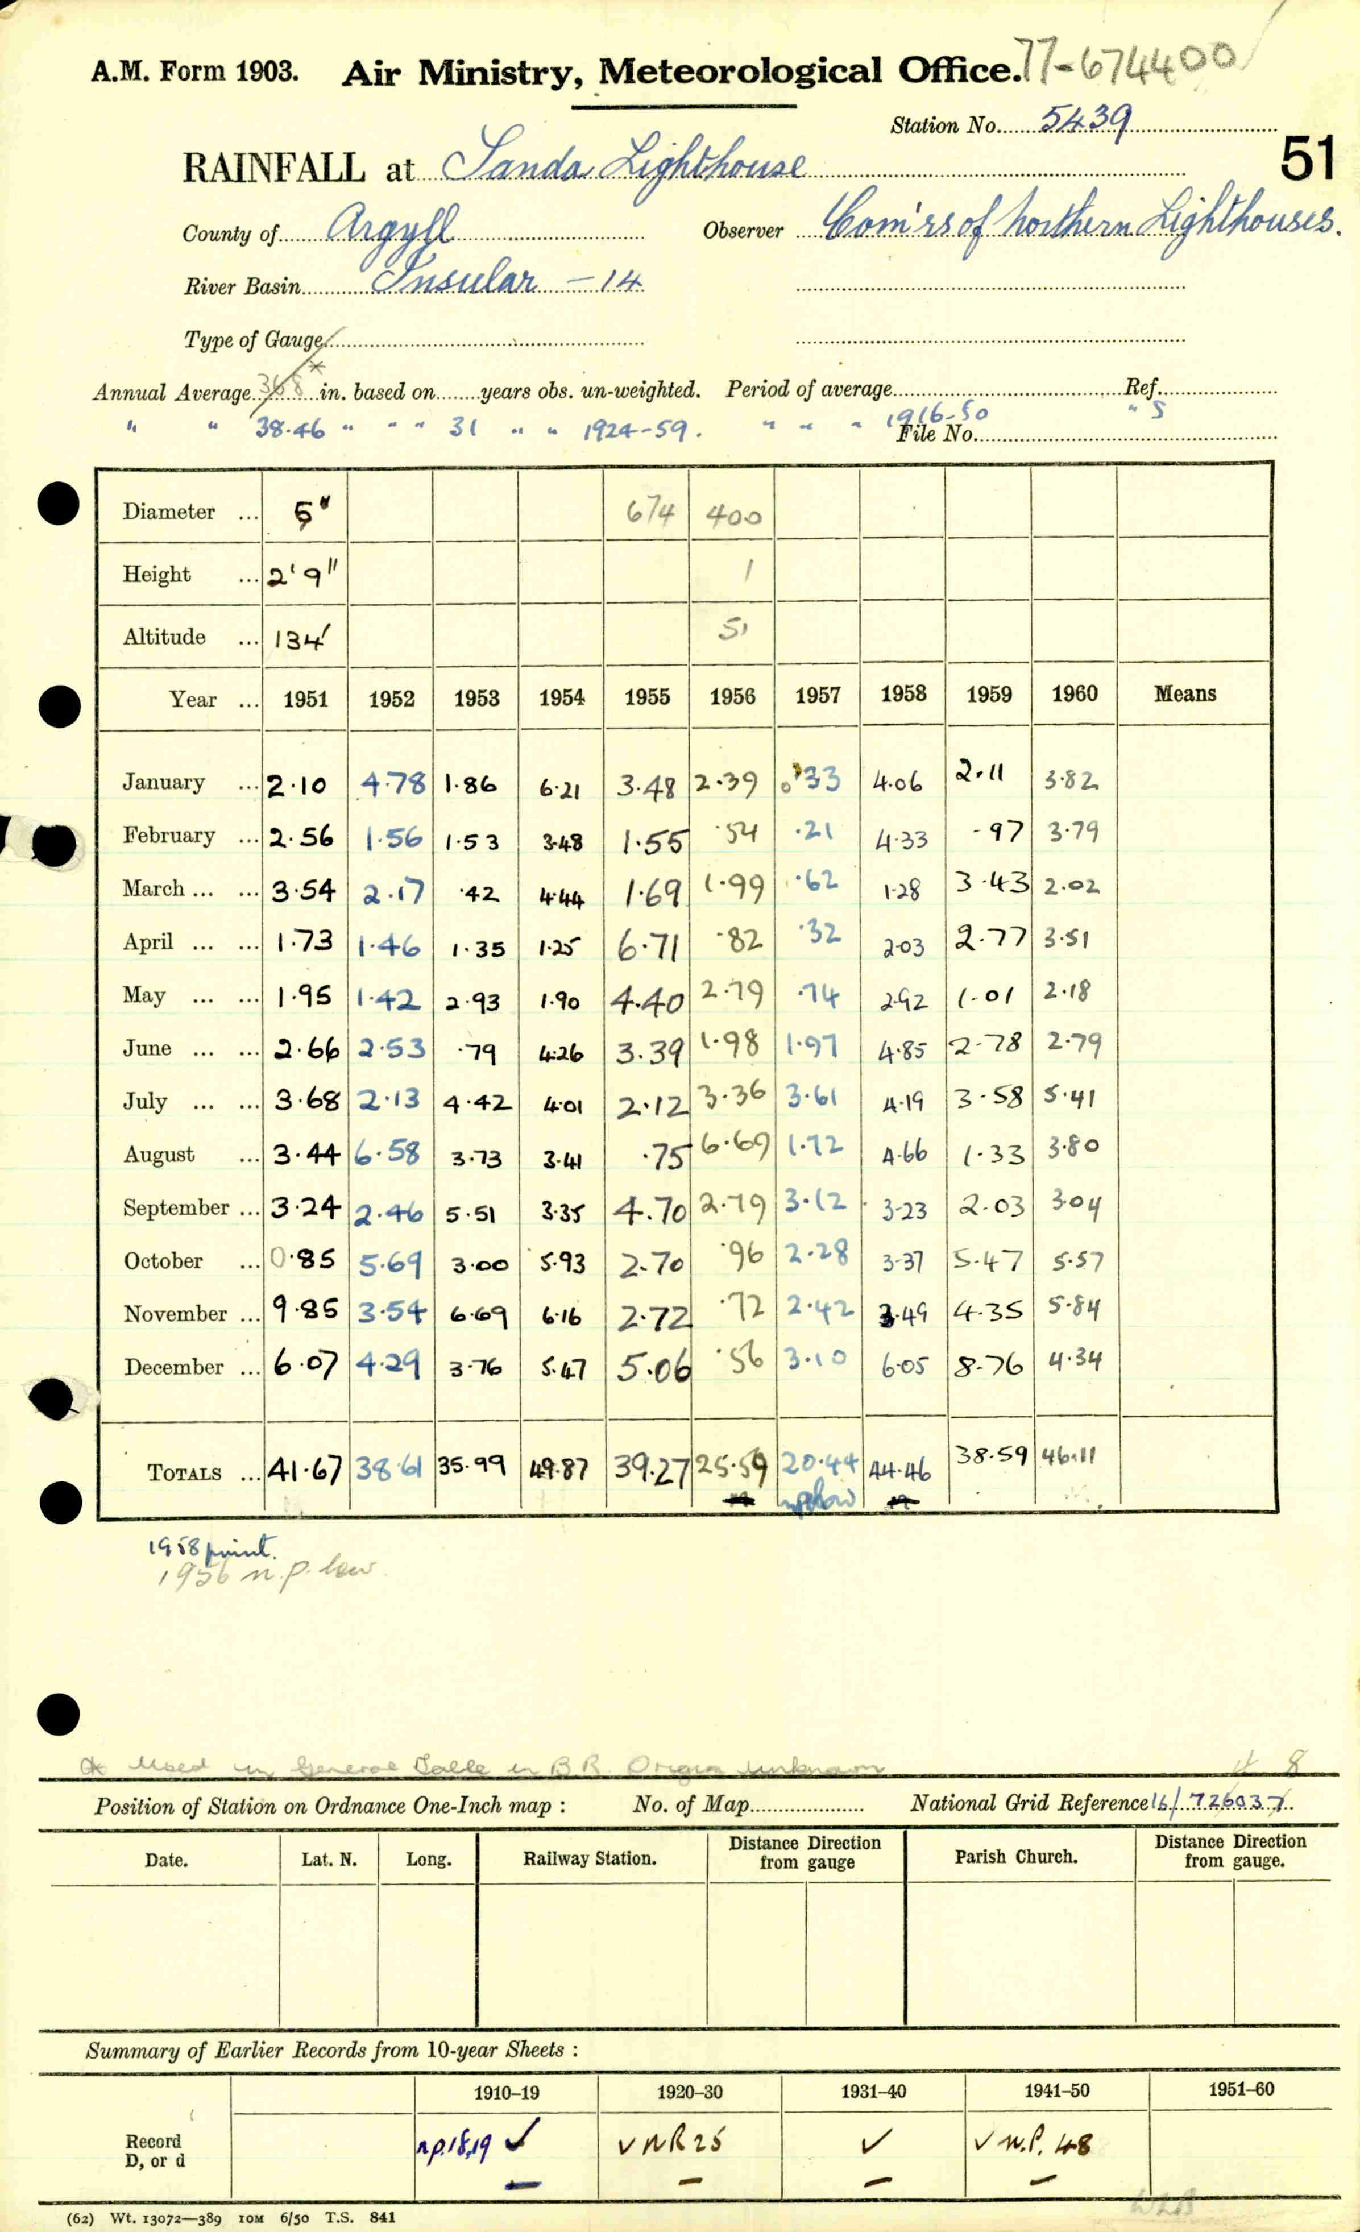 A.M. Form 1903. Air Ministry, Meteorological Office. 77-674400/
Station No. 5439
51
RAINFALL at Sanda Lighthouse
County of Argyll Observer Com'rs of Northern Lighthouses.
River Basin Insular - 14
Type of Gauge
Annual Average 36.8* in. based on years obs. un-weighted. Period of average Ref.
" " 38.46 " " " 31 " " 1924-59. " " " 1916-50 " S
File No.
Diameter ... 5" 674 400
Height ... 2' 9" 1
Altitude ... 134' 51
Year ... 1951 1952 1953 1954 1955 1956 1957 1958 1959 1960 Means
January ... 2.10 4.78 1.86 6.21 3.48 2.39 0.33 4.06 2.11 3.82
February ... 2.56 1.56 1.53 3.48 1.55 .54 .21 4.33 .97 3.79
March ... ... 3.54 2.17 .42 4.44 1.69 1.99 .62 1.28 3.43 2.02
April ... ... 1.73 1.46 1.35 1.25 6.71 .82 .32 2.03 2.77 3.51
May ... ... 1.95 1.42 2.93 1.90 4.40 2.79 .74 2.92 1.01 2.18
June ... ... 2.66 2.53 .79 4.26 3.39 1.98 1.97 4.85 2.78 2.79
July ... ... 3.68 2.13 4.42 4.01 2.12 3.36 3.61 4.19 3.58 5.41
August ... 3.44 6.58 3.73 3.41 .75 6.69 1.72 4.66 1.33 3.80
September ... 3.24 2.46 5.51 3.35 4.70 2.79 3.12 3.23 2.03 3.04
October ... 0.85 5.69 3.00 5.93 2.70 .96 2.28 3.37 5.47 5.57
November ... 9.85 3.54 6.69 6.16 2.72 .72 2.42 3.49 4.35 5.84
December ... 6.07 4.29 3.76 5.47 5.06 .56 3.10 6.05 8.76 4.34
TOTALS ... 41.67 38.61 35.99 49.87 39.27 25.59 20.44 44.46 38.59 46.11
np low
1958 print.
1956 n.p. low
* Used in General Table in B.R. Origin unknown
4 8
Position of Station on Ordnance One-Inch map : No. of Map National Grid Reference 16/726037
Date. Lat. N. Long. Railway Station. Distance from gauge Direction Parish Church. Distance from gauge. Direction
Summary of Earlier Records from 10-year Sheets :
1910–19 1920–30 1931–40 1941–50 1951–60
Record D, or d n.p. 18,19 ✓ ✓ N R 25 ✓ ✓ N.P. 48
(62) Wt. 13072—389 10M 6/50 T.S. 841